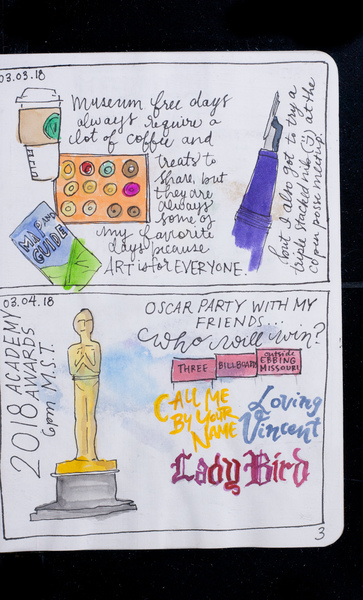 03.03.18
Museum free days
always require a
lot of coffee and
treats to
share, but
they are
always
some of
my favorite
days because
ART is for EVERYONE.
MAP AND
GUIDE
but I also got to try a
triple stacked nib (!) at the
co pen posse meeting.
03.04.18
2018 ACADEMY
AWARDS
6pm M.S.T.
OSCAR PARTY WITH MY
FRIENDS...
Who will win?
THREE BILLBOARDS outside
EBBING
MISSOURI
CALL ME
BY YOUR
NAME
Loving
Vincent
Lady Bird
3